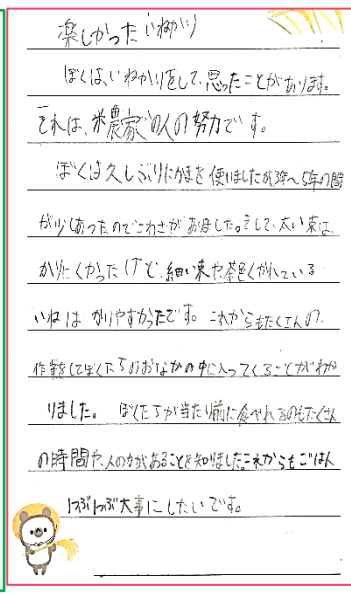 楽しかったいねかり
ぼくは、いねかりをして、思ったことがあります。
それは、米農家の人の努力です。
ぼくは久しぶりにかまを使いましたが3年〜5年の間
が少しあったのでこわさがありました。そして、太い束は、
かりにくかったけど、細い束や茶色くかれている
いねは かりやすかったです。これからもたくさんの、
作業をしてぼくたちのおなかの中に入ってくることがわか
りました。 ぼくたちが当たり前に食べれるのもたくさん
の時間や、人の力があることを知りました。これからもごはん
1つぶ1つぶ大事にしたいです。